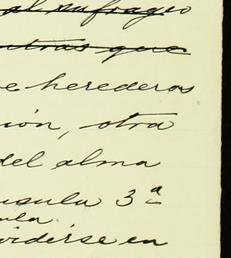 al sufragio
ntras que
e herederos
ión, otra
del alma
usula 3ª
ula
vidirse en